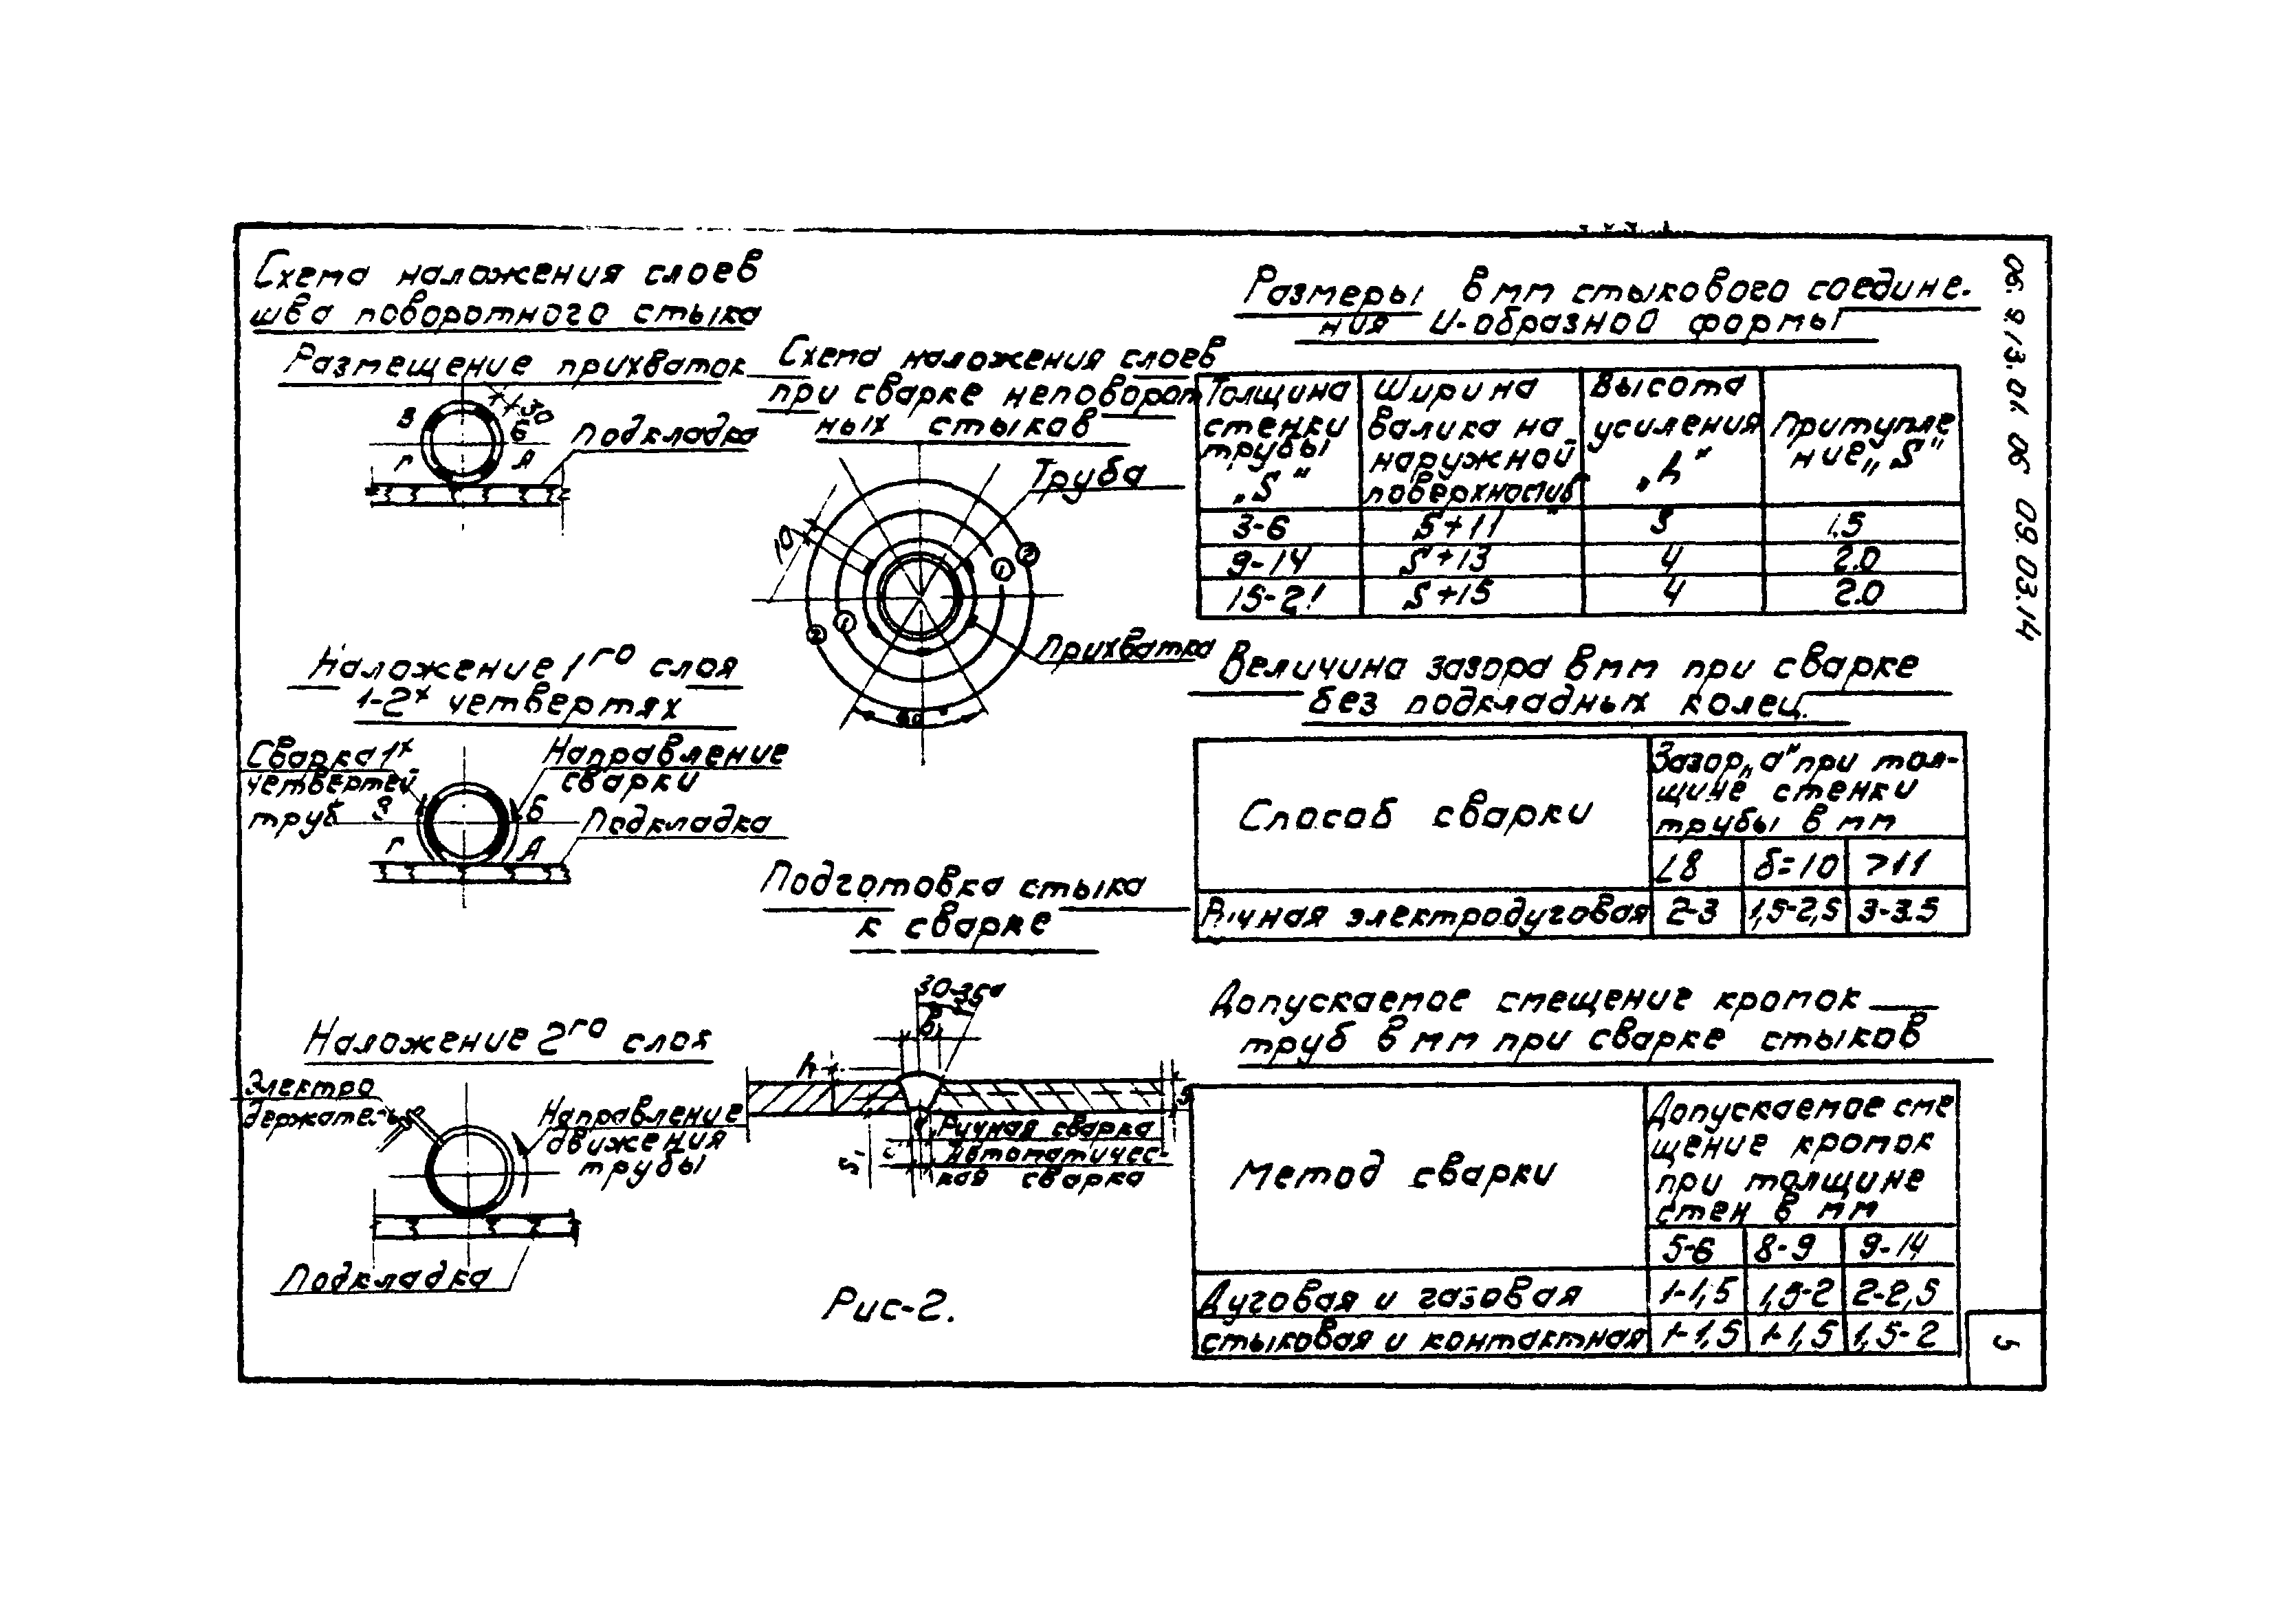 Схема наложения слоев
шва поворотного стыка
Размещение прихваток
30
В
Б
Г
А
Подкладка
Наложение 1го слоя
1-2х четвертях
Сварка 1х
четвертей
труб
В
Б
Г
А
Направление
сварки
Подкладка
Наложение 2го слоя
Электро
держатель
Направление
движения
трубы
Подкладка
Схема наложения слоев
при сварке неповорот
ных стыков
Труба
10
1
2
1
2
Прихватка
60°
Подготовка стыка
к сварке
30-35°
в
h
S
Ручная сварка
Автоматичес-
кая сварка
S
Рис-2.
Размеры в мм стыкового соедине-
ния U-образной формы
Толщина
стенки
трубы
„S“
Ширина
валика на
наружной
поверхности„в“
Высота
усиления
„h“
Притупле
ние„S“
3-6 S+11 3 1,5
9-14 S+13 4 2.0
15-21 S+15 4 2.0
Величина зазора в мм при сварке
без подкладных колец.
Способ сварки
Зазор„а“при тол-
щине стенки
трубы в мм
<8 δ=10 >11
Ручная электродуговая 2-3 1,5-2,5 3-3.5
Допускаемое смещение кромок
труб в мм при сварке стыков
Метод сварки
Допускаемое сме
щение кромок
при толщине
стен в мм
5-6 8-9 9-14
Дуговая и газовая 1-1,5 1,5-2 2-2,5
стыковая и контактная 1-1,5 1-1,5 1,5-2
06. 9.13. 01 06 09. 03.14
5